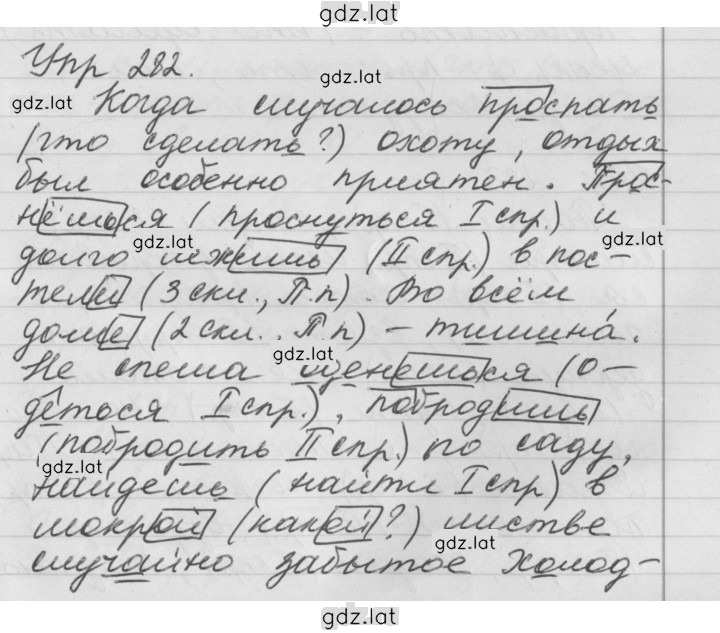 gdz.lat
Упр 282.
gdz.lat
gdz.lat
Когда случалось проспать
(что сделать?) охоту, отдых
был особенно приятен. Прос-
нёшься (проснуться I спр.) и
gdz.lat
gdz.lat
долго лежишь (II спр.) в пос-
тели (3 скл., П.п). Во всём
доме (2 скл., П.п) – тишина́.
gdz.lat
Не спеша оденешься (о-
деться I спр.), побродишь
(побродить II спр.) по саду,
gdz.lat
найдешь (найти I спр) в
мокрой (какой?) листве
gdz.lat
случайно забытое холод-
gdz.lat